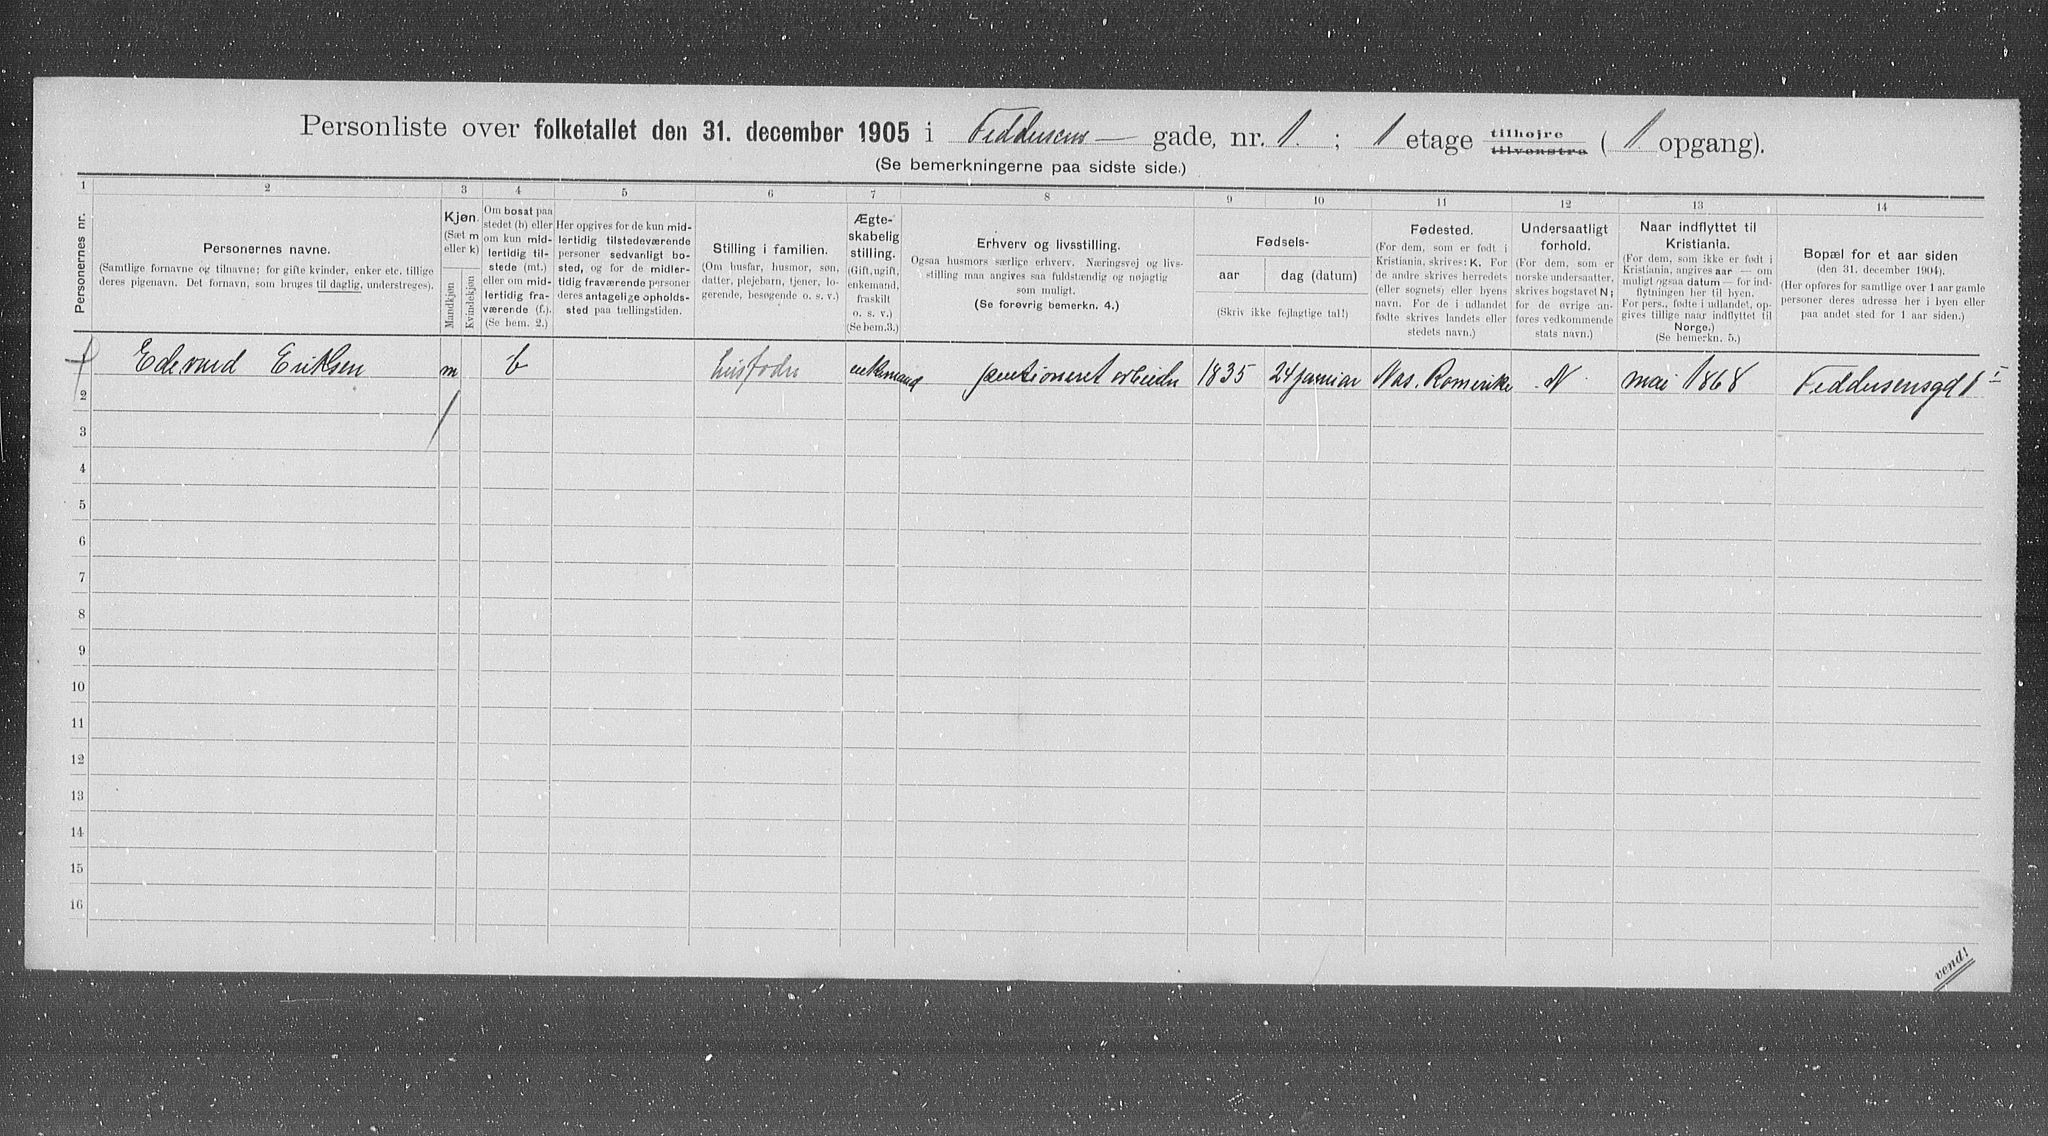 Personliste over folketallet den 31. december 1905 i Feddersens — gade, nr. 1. ; 1 etage tilhøjre tilvenstre ( 1 opgang).
(Se bemerkningerne paa sidste side.)
1 2 3 4 5 6 7 8 9 10 11 12 13 14
Personernes nr.
Personernes navne.
(Samtlige fornavne og tilnavne; for gifte kvinder, enker etc. tillige
deres pigenavn. Det fornavn, som bruges til daglig, understreges).
Kjøn.
(Sæt m
eller k)
Mandkjøn
Kvindekjøn
Om bosat paa
stedet (b) eller
om kun mid-
lertidig til-
stede (mt.)
eller om mid-
lertidig fra-
værende (f.).
(Se bem. 2.)
Her opgives for de kun mid-
lertidig tilstedeværende
personer sedvanligt bo-
sted, og for de midler-
tidig fraværende personer
deres antagelige opholds-
sted paa tællingstiden.
Stilling i familien.
(Om husfar, husmor, søn,
datter, plejebarn, tjener, lo-
gerende, besøgende o. s. v.)
Ægte-
skabelig
stilling.
(Gift, ugift,
enkemand,
fraskilt
o. s. v.)
(Se bem.3.)
Erhverv og livsstilling.
Ogsaa husmors særlige erhverv. Næringsvej og livs-
stilling maa angives saa fuldstændig og nøjagtig
som muligt.
(Se forøvrig bemerkn. 4.)
Fødsels-
aar
dag (datum)
(Skriv ikke fejlagtige tal!)
Fødested.
(For dem, som er født i
Kristiania, skrives: K. For
de andre skrives herredets
(eller sognets) eller byens
navn. For de i udlandet
fødte skrives landets eller
stedets navn.)
Undersaatligt
forhold.
(For dem, som er
norske undersaatter,
skrives bogstavet N;
for de øvrige an-
føres vedkommende
stats navn.)
Naar indflyttet til
Kristiania.
(For dem, som ikke er født i
Kristiania, angives aar — om
muligt ogsaa datum — for ind-
flytningen her til byen.
For pers., fødte i udlandet, op-
gives tillige naar indflyttet til
Norge.)
(Se bemerkn. 5.)
Bopæl for et aar siden
(den 31. december 1904).
(Her opføres for samtlige over 1 aar gamle
personer deres adresse her i byen eller
paa andet sted for 1 aar siden.)
1 Edevard Eriksen m b husfader enkemand pentioneret arbeider 1835 24 januar Nas. Romerike N mai 1868 Feddersensgd 1 I
2
3
4
5
6
7
8
9
10
11
12
13
14
15
16
vend!